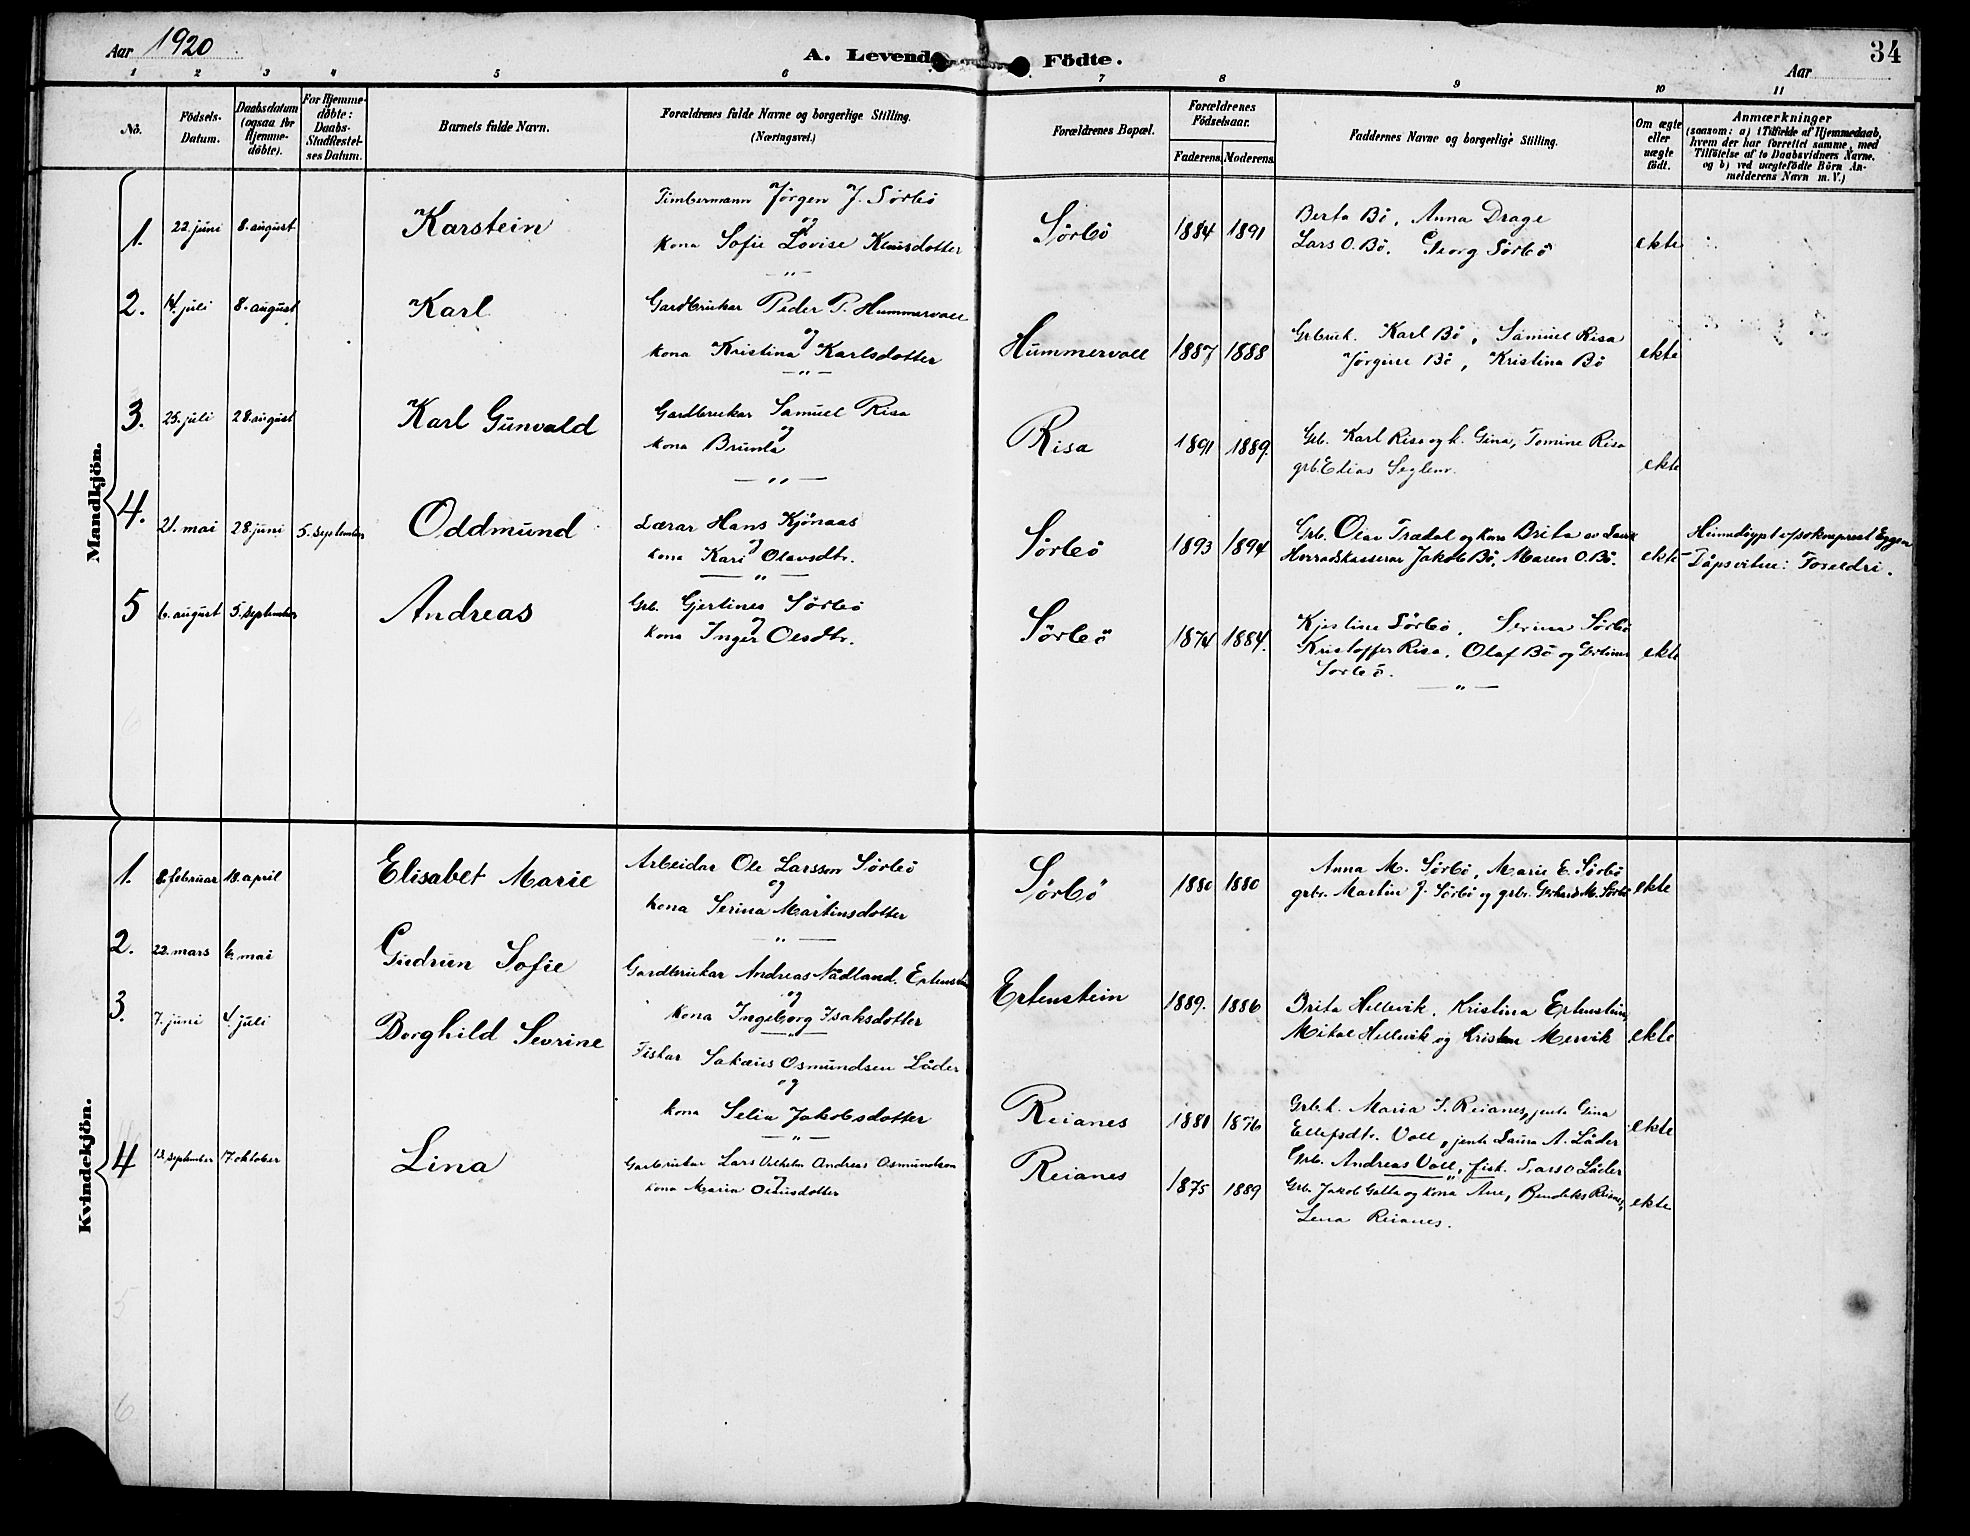 Aar 1920
A. Levende Födte.
34
Aar
1 2 3 4 5 6 7 8 9 10 11
No.
Födsels-
Datum.
Daabsdatum
(ogsaa for
Hjemme-
döbte).
For Hjemme-
döbte:
Daabs-
Stadfæstel-
ses Datum.
Barnets fulde Navn.
Forældrenes fulde Navne og borgerlige Stilling.
(Næringsvei.)
Forældrenes Bopæl.
Forældrenes
Födselsaar.
Faderens. Moderens.
Faddernes Navne og borgerlige Stilling.
Om ægte
eller
uægte
födt.
Anmærkninger
(saasom: a) i Tilfælde af Hjemmedaab,
hvem der har forrettet samme, med
Tilföielse af to Daabsvidners Navne.
og b) ved uægtefödte Börn An-
melderens Navn m. V.)
Mandkjön.
1. 22. juni 8. august Karstein
Timbermann Jörgen J. Sörbö
og
kona Sofie Lovise
Sörbö 1884 1891
Berta Bö, Anna Drage
Lars O. Bö. Georg Sörbö
ekte
2. 14. juli 8. august Karl
Gardbrukar Peder P. Hummervoll
og
kona Kristina Karlsdotter
Hummervoll 1887 1888
Grbruk. Karl Bö, Samuel Risa
Jörgine Bö, Kristina Bö
ekte
3. 25. juli 28. august Karl Gunvald
Gardbrukar Samuel Risa
og
kona Brunla
Risa 1891 1889.
Grb. Karl Risa og k. Gina, Tomine Risa
grb. Elias Seglem.
ekte
4. 21. mai 28. juni 5. september Oddmund
Lærar Hans Kjönaas
og
kona Kari Olavsdtr.
Sörbö 1893 1894
Grb. Olav Trædal og kona Brita av
Herradskasserar Jakob Bö, Maren O. Bö.
ekte
Heimedöypt v/sokneprest Eggen
Dåpsvitne: Foreldri.
5 6. august 5. september Andreas
Grb. Gjertines Sörbö
og
kona Inger Olesdtr.
Sörbö 1874 1884.
Kjestine Sörbö, Serina Sörbö
Kristoffer Risa, Olaf Bö og
Sörbö.
ekte
Kvindekjön.
1. 8. februar 18. april Elisabet Marie
Arbeidar Ole Larsson Sörbö
og
kona Serina Martinsdotter
Sörbö 1880 1880
Anna M. Sörbö, Marie E. Sörbö
grbr. Martin J. Sörbö og grbr. Gerhard M. Sörbö
ekte
2. 22. mars 6. mai Gudrun Sofie
Gardbrukar Andreas Nådland, Ertenstein
og
kona Ingeborg Isaksdotter
Ertenstein 1889. 1886
Brita Hellevik, Kristina Ertenstein,
Mikal Hellevik og Kristen Mervik
ekte
3. 7. juni 4. juli Borghild Sevrine
Fiskar Sakarius Osmundsen Låder
og
kona Selia Jakobsdotter
Reianes 1881 1876
Grb.k. Maria T. Reianes, jente Gina
Ellefsdtr. Voll, jente Laura A. Låder
Grb. Andreas Voll, fisk. Lars O Låder
ekte
4 13. september 17 oktober Lina
Gardbrukar Lars Vilhelm Andreas Osmundson
og
kona Maria
Reianes 1875 1889
Grb. Jakob Galta og kona Ane, Bendiks Reianes,
Lena Reianes.
ekte
5
6